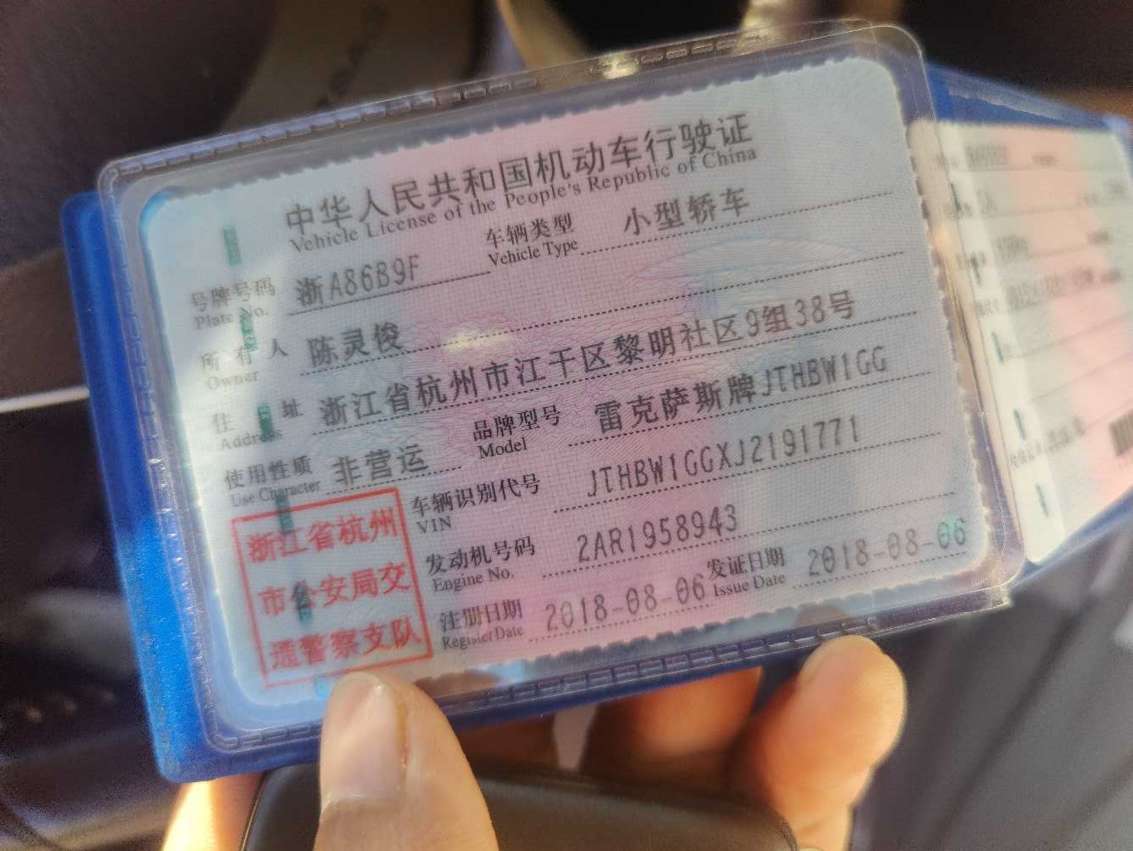 中华人民共和国机动车行驶证
Vehicle License of the People's Republic of China
号牌号码 浙A86B9F 车辆类型 小型轿车
Plate No. Vehicle Type
所有人 陈灵俊
Owner
住址 浙江省杭州市江干区黎明社区9组38号
Address
使用性质 非营运 品牌型号 雷克萨斯牌JTHBW1GG
Use Character Model
车辆识别代号 JTHBW1GGXJ2191771
VIN
发动机号码 2AR1958943
Engine No.
注册日期 2018-08-06 发证日期 2018-08-06
Register Date Issue Date
浙江省杭州
市公安局交
通警察支队